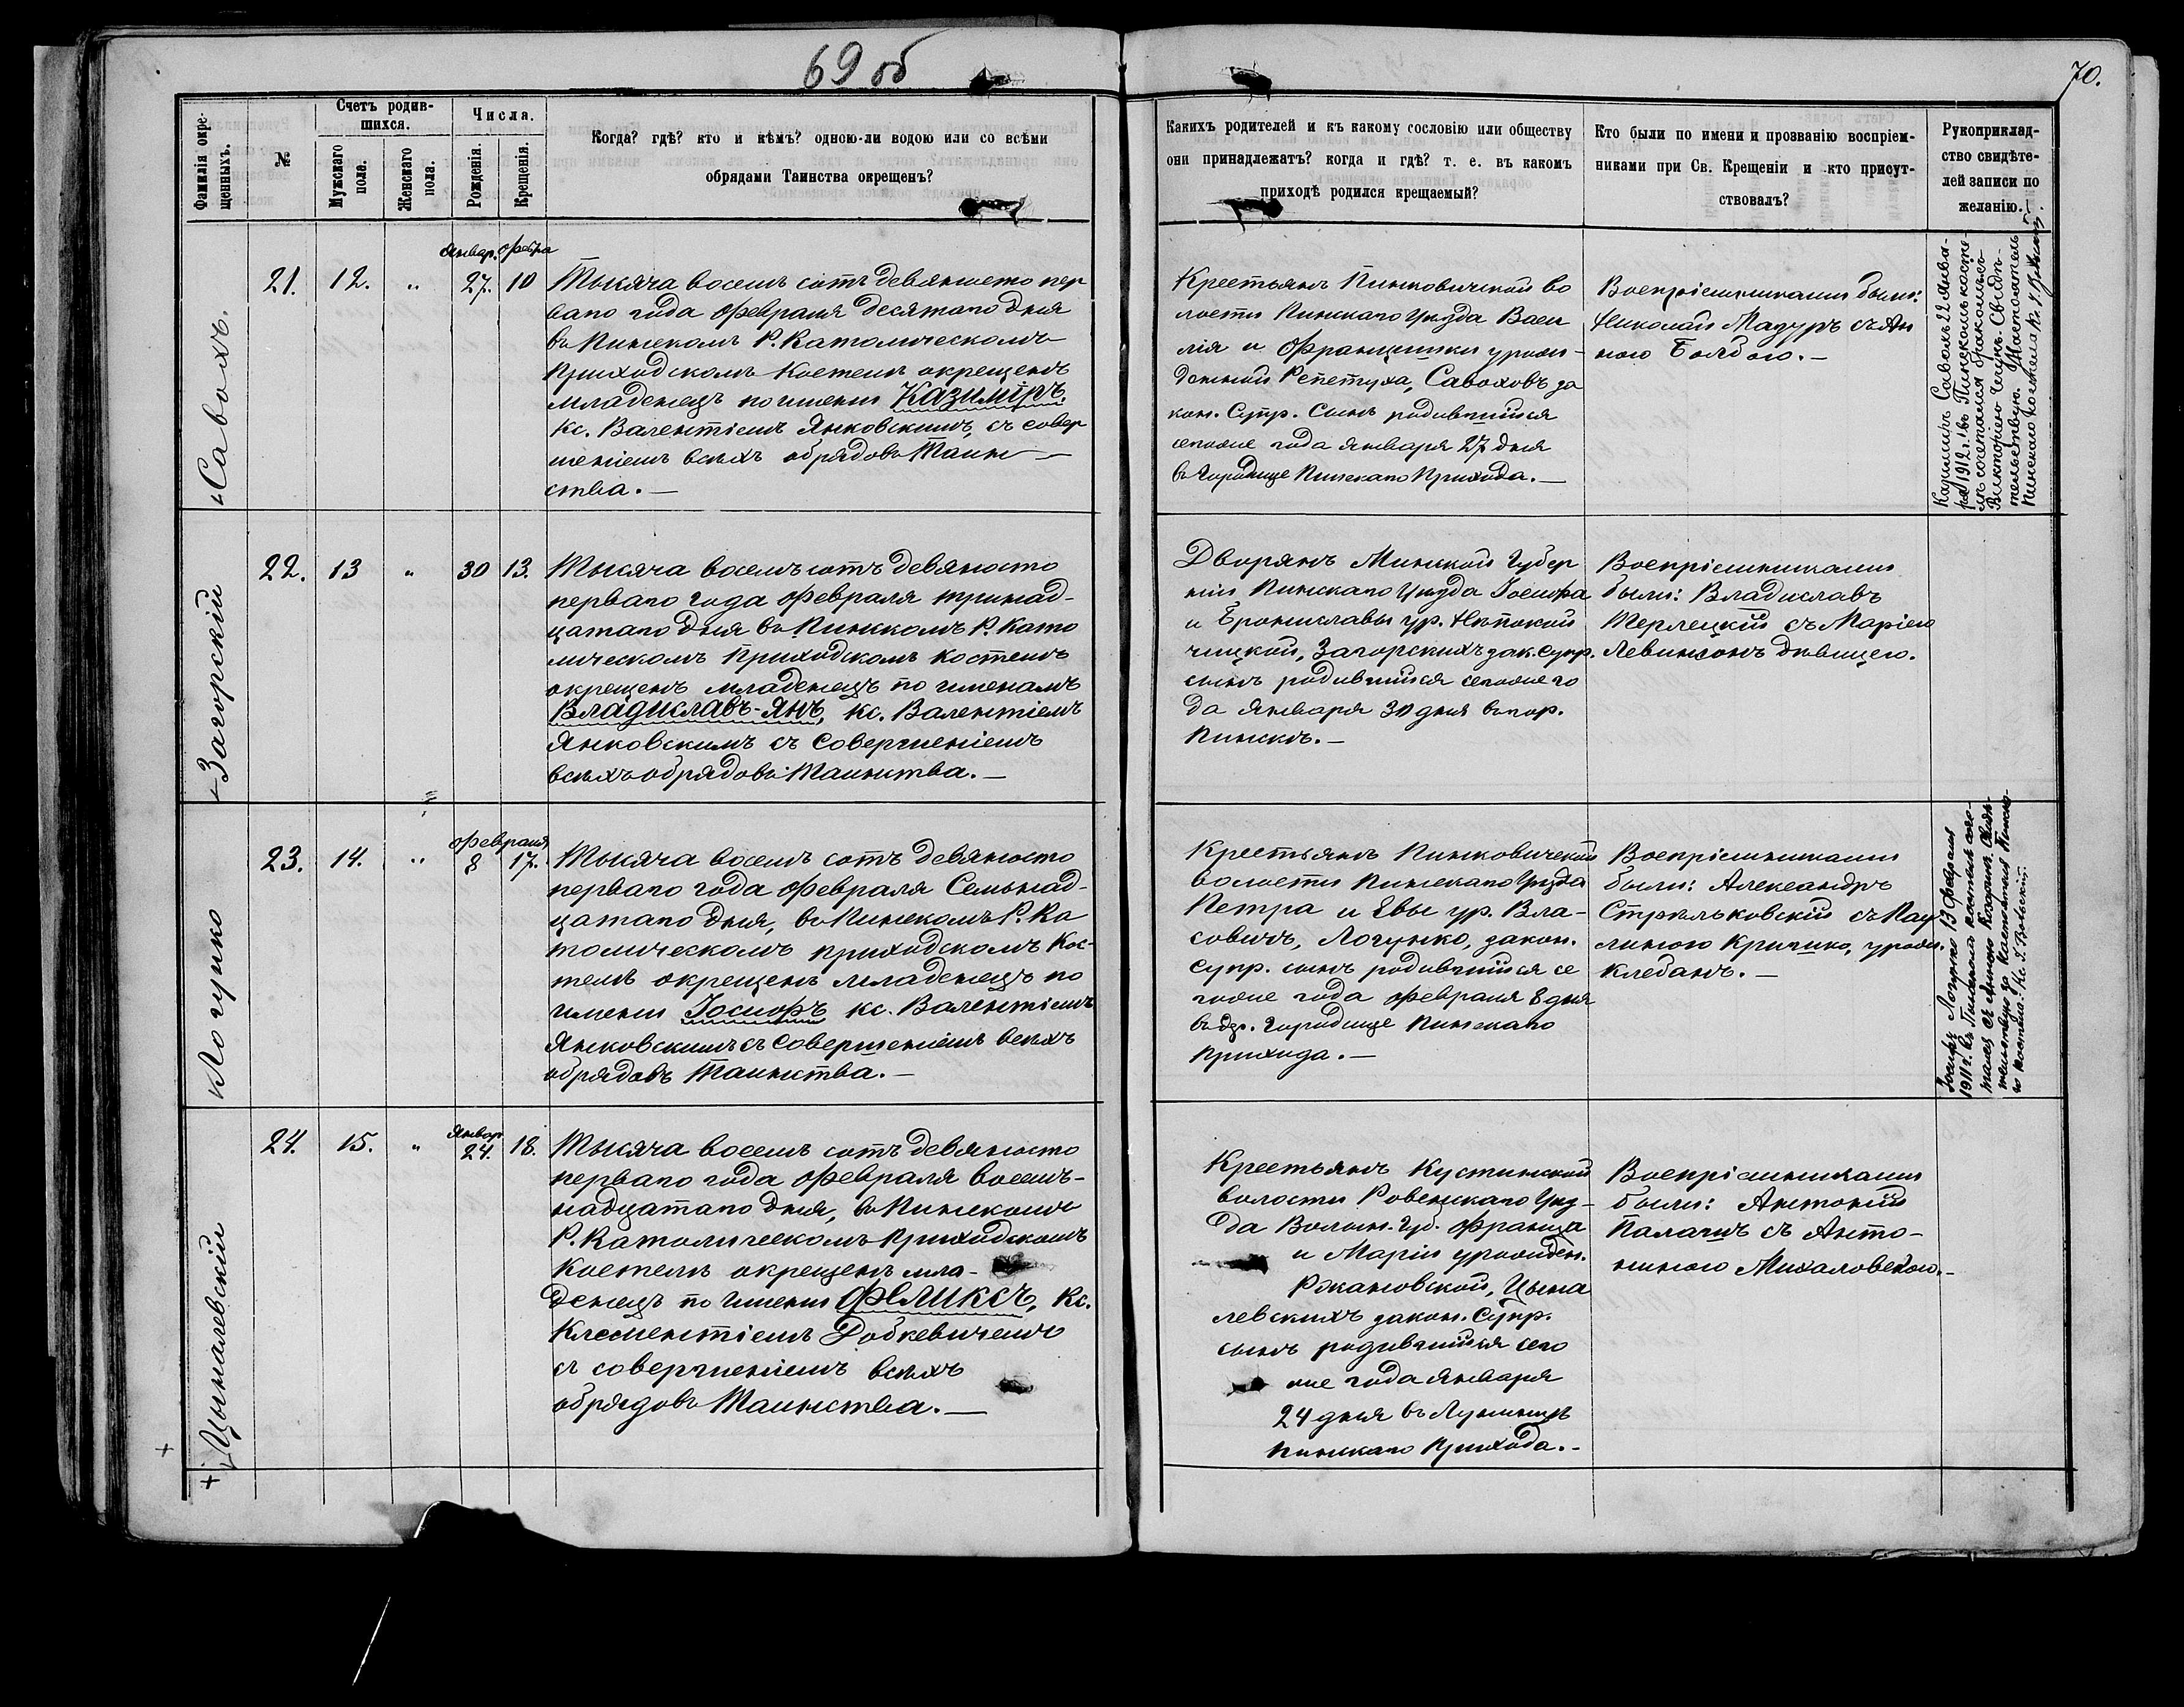 69 об
70.
Фамилія окре-
щенныхъ.
№
Счетъ родив-
шихся.
Мужскаго
пола.
Женскаго
пола.
Числа.
Рожденія.
Крещенія.
Когда? гдѣ? кто и кѣмъ? одною-ли водою или со всѣми
обрядами Таинства окрещенъ?
Какихъ родителей и къ какому сословію или обществу
они принадлежатъ? когда и гдѣ? т. е. въ какомъ
приходѣ родился крещаемый?
Кто были по имени и прозванію воспріем-
никами при Св. Крещеніи и кто присут-
ствовалъ?
Рукоприклад-
ство свидѣте-
лей записи по
желанію.
Савохъ.
21.
12.
"
Январ.
27.
Февра
10
Тысяча восемь сотъ девяносто пер
ваго года Февраля десятаго дня
въ Пинскомъ Р. Католическомъ
Приходскомъ Костелѣ окрещенъ
младенецъ по имени Казиміръ.
Кс. Валентіемъ Янковскимъ, съ совер
шеніемъ всѣхъ обрядовъ Таин—
ства.—
Крестьянъ Пинковичской во
лости Пинскаго Уѣзда Васи
лія и Францишки урож-
денной Репетуха, Савоховъ за
кон. Супр. Сынъ родившійся
сегоже года Января 27 дня
въ Городище Пинскаго Прихода.—
Воспріемниками были:
Николай Мазуръ съ Ан
ною Болбою.—
Казиміръ Савохъ 22 Янва-
ря 1912 г. въ Пинскомъ косте-
лѣ сочетался бракомъ съ
Викторіею
тельствую. Настоятель
Пинскаго костела Кс.
Загорскій
22.
13
"
30
13.
Тысяча восемь сотъ девяносто
перваго года Февраля тринад-
цатаго дня въ Пинскомъ Р. Като
лическомъ Приходскомъ Костелѣ
окрещенъ младенецъ по именамъ
Владиславъ-Янъ, кс. Валентіемъ
Янковскимъ съ совершеніемъ
всѣхъ обрядовъ Таинства.—
Дворянъ Минской Губер
ніи Пинскаго Уѣзда Іосифа
и Брониславы ур. Нѣпокой
чицкой, Загорскихъ зак. Супр.
сынъ родившійся сегоже го
да Января 30 дня въ гор.
Пинскѣ.—
Воспріемниками
были: Владиславъ
Терлецкій съ Маріею
Левинсонъ дѣвицею.
Логушко
23.
14.
"
Февраля
8
17.
Тысяча восемь сотъ девяносто
перваго года Февраля Семьнад-
цатаго дня, въ Пинскомъ Р. Ка
толическомъ приходскомъ Кос-
телѣ окрещенъ младенецъ по
имени Іосифъ кс. Валентіемъ
Янковскимъ съ совершеніемъ всѣхъ
обрядовъ Таинства.—
Крестьянъ Пинковичской
волости Пинскаго Уѣзда
Петра и Евы ур. Вла-
совичъ, Логушко, закон.
Супр. сынъ родившійся се
гоже года Февраля 8 дня
въ др. Городище Пинскаго
Прихода.—
Воспріемниками
были: Александръ
Стрѣльковскій съ Пау
линою Кричко, урож.
Клебанъ.—
Іосифъ Логушко 13 Февраля
1911 г. въ Пинскомъ костелѣ соче-
тался съ Анною
Настоятель Пинска-
го костела Кс.
Цыналевскій
24.
15.
"
Январ
24.
18.
Тысяча восемь сотъ девяносто
перваго года Февраля восемь-
надцатаго дня, въ Пинскомъ
Р. Католическомъ Приходскомъ
Костелѣ окрещенъ мла-
денецъ по имени Феликсъ, Кс.
Клементіемъ Добкевичемъ
съ совершеніемъ всѣхъ
обрядовъ Таинства.—
Крестьянъ Кустинской
волости Ровенскаго Уѣз-
да Волын. Губ. Франца
и Маріи урожден.
Ржановской, Цына
левскихъ закон. Супр.
сынъ родившійся сего
же года Января
24 дня въ Лунинцѣ
Пинскаго Прихода.-
Воспріемниками
были: Антоній
Палачъ съ Анто-
ниною Михаловскою.-